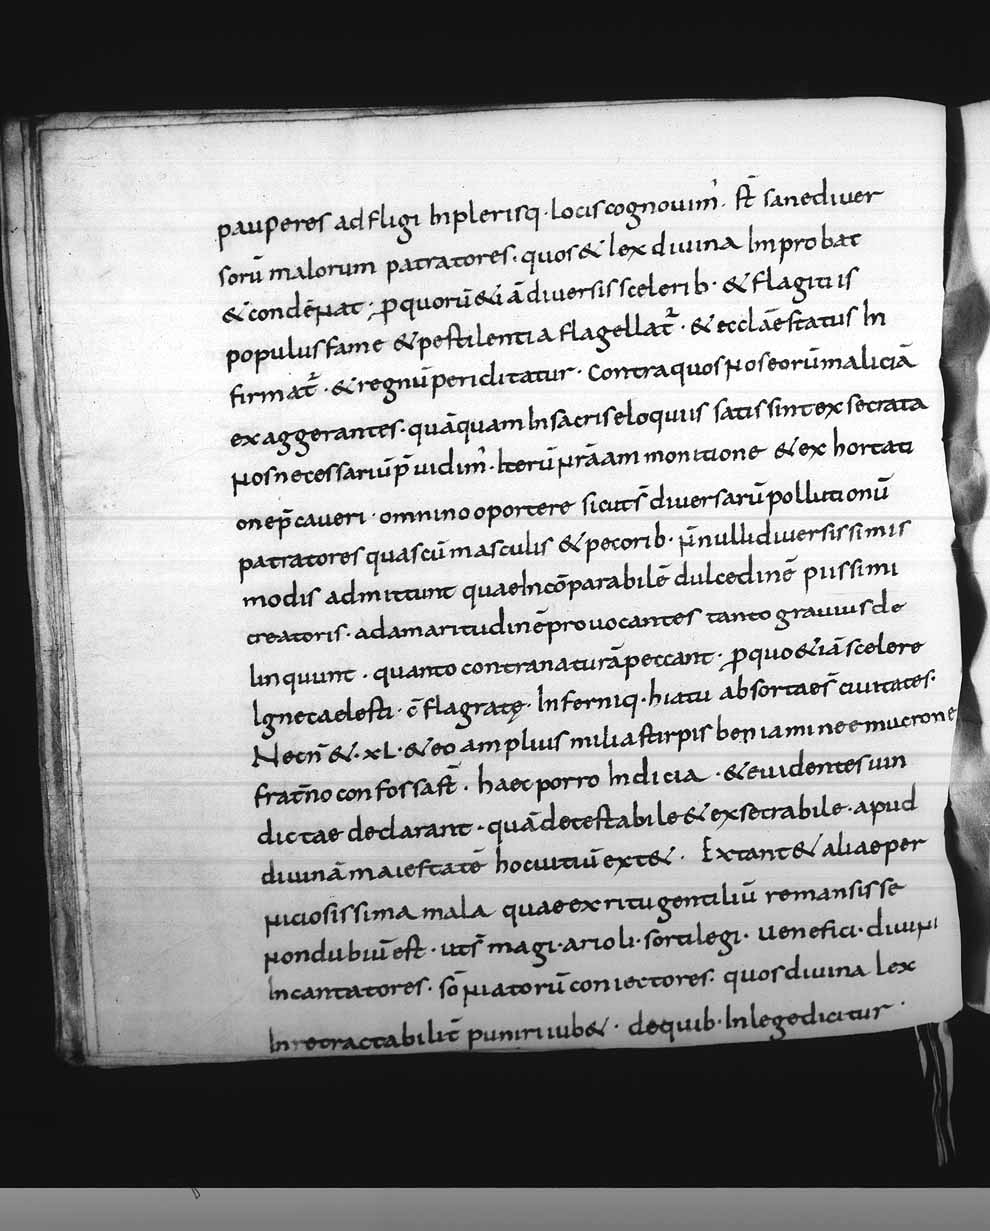 pauperes adfligi Inplerisq· locis cognouim᾽. st̄ sane diuer
sorū malorum patratores· quos & lex diuina Improbat
& condēnat; ꝓ quorū &iā diuersis scelerib· & flagitiis
populus fame & pestilentia flagellat᷑· & ecclāe status In
firmat᷑· & regnū periclitatur· Contra quos nos eorū maliciā
exaggerantes· quāquam In sacris eloquiis satis sint exsecrata
nos necessariū p̄uidim᾽· Iterū nr̄a ammonitione & exhortati
one p̄caueri· omnino oportere sicut s̄ diuersarū pollutionū
patratores quas cū masculis & pecorib· n̄nulli diuersissimis
modis admittunt quae Incōparabilē dulcedinē piissimi
creatoris· ad amaritudinē prouocantes tanto grauius de
linquunt· quanto contra naturā peccant· ꝓ quo &iā scelere
Igne caelesti· c̄flagratę· Inferniq· hiatu absortae s̄ ciuitates·
Necn̄ &· xL· & eo amplius milia stirpis beniamineae mucrone
frat̄no confossa st̄· haec porro Indicia· & euidentes uin
dictae declarant· quā detestabile & exsecrabile· apud
diuinā maiestatē hoc uitiū ext&· Extant & alia per
niciosissima mala quae ex ritu gentiliū remansisse
non dubiū est· ut s̄ magi· arioli· sortilegi· uenefici· diuini
Incantatores· sōniatorū coniectores· quos diuina lex
Inretractabilit̄ puniri iub&· de quib· In lege dicitur·